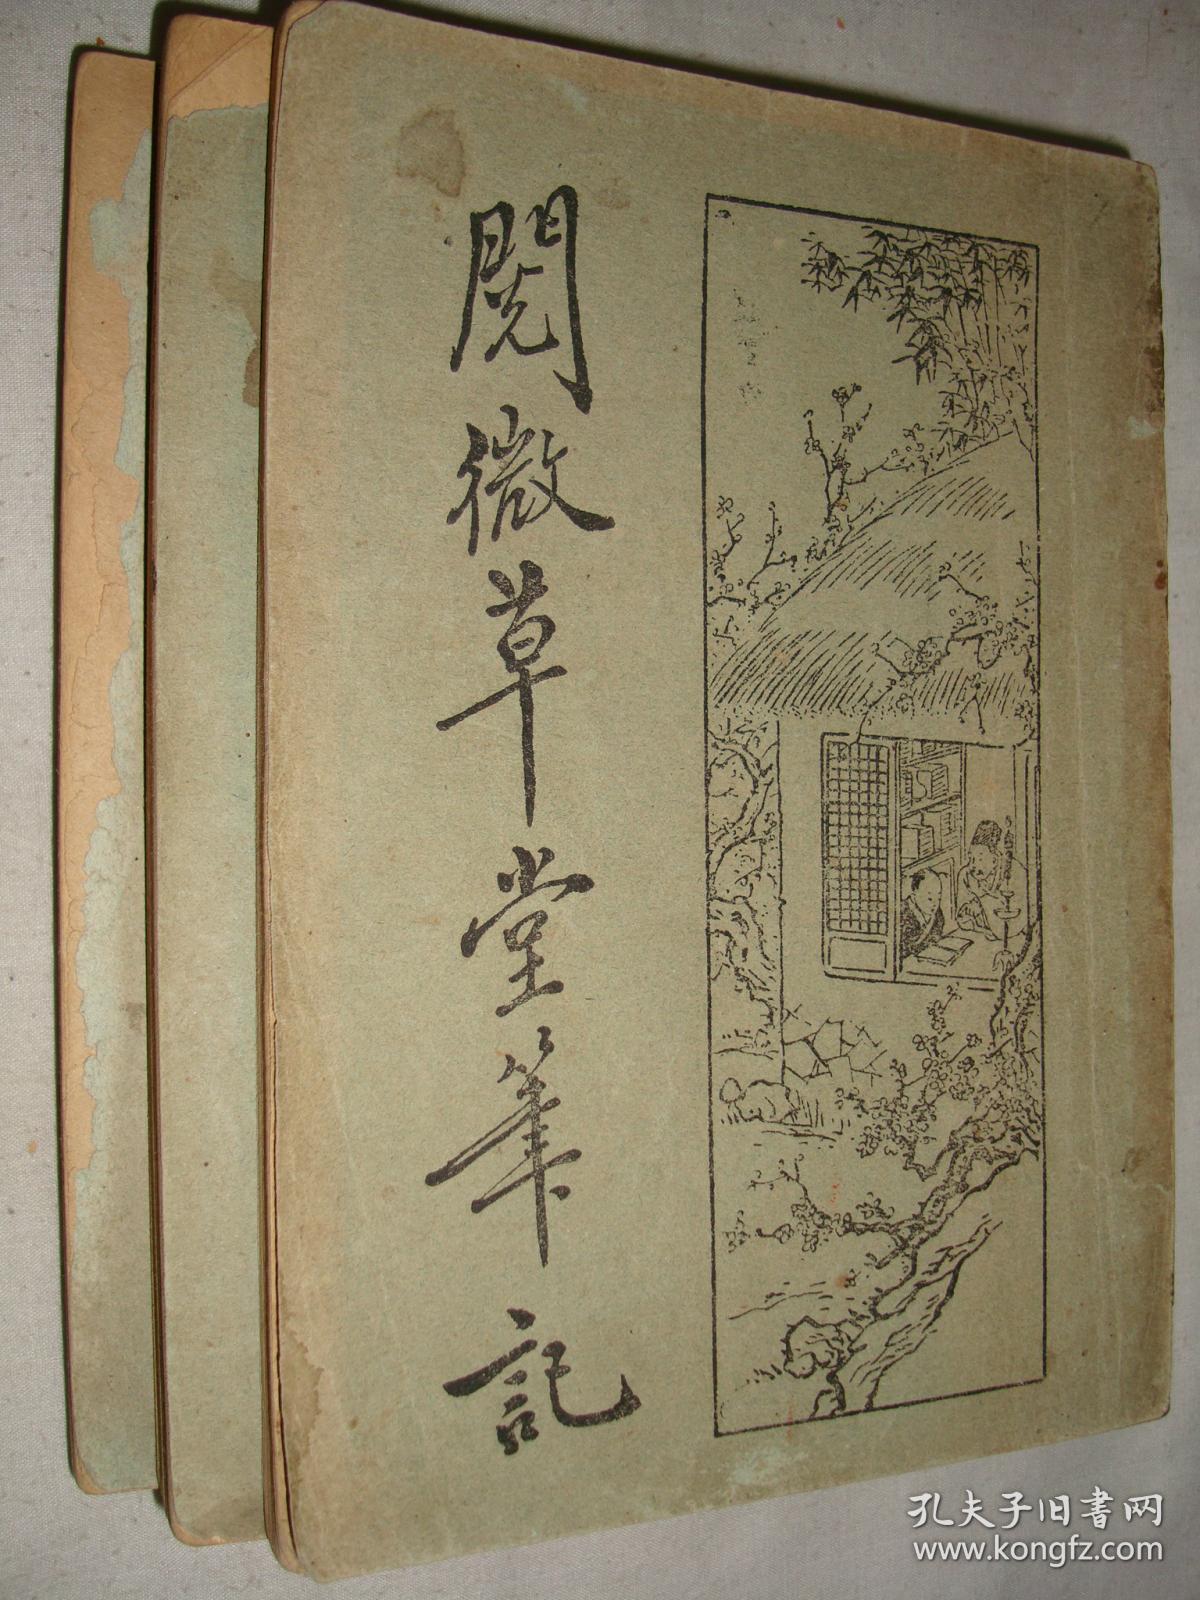 閱微草堂筆記
孔夫子旧書网
www.kongfz.com